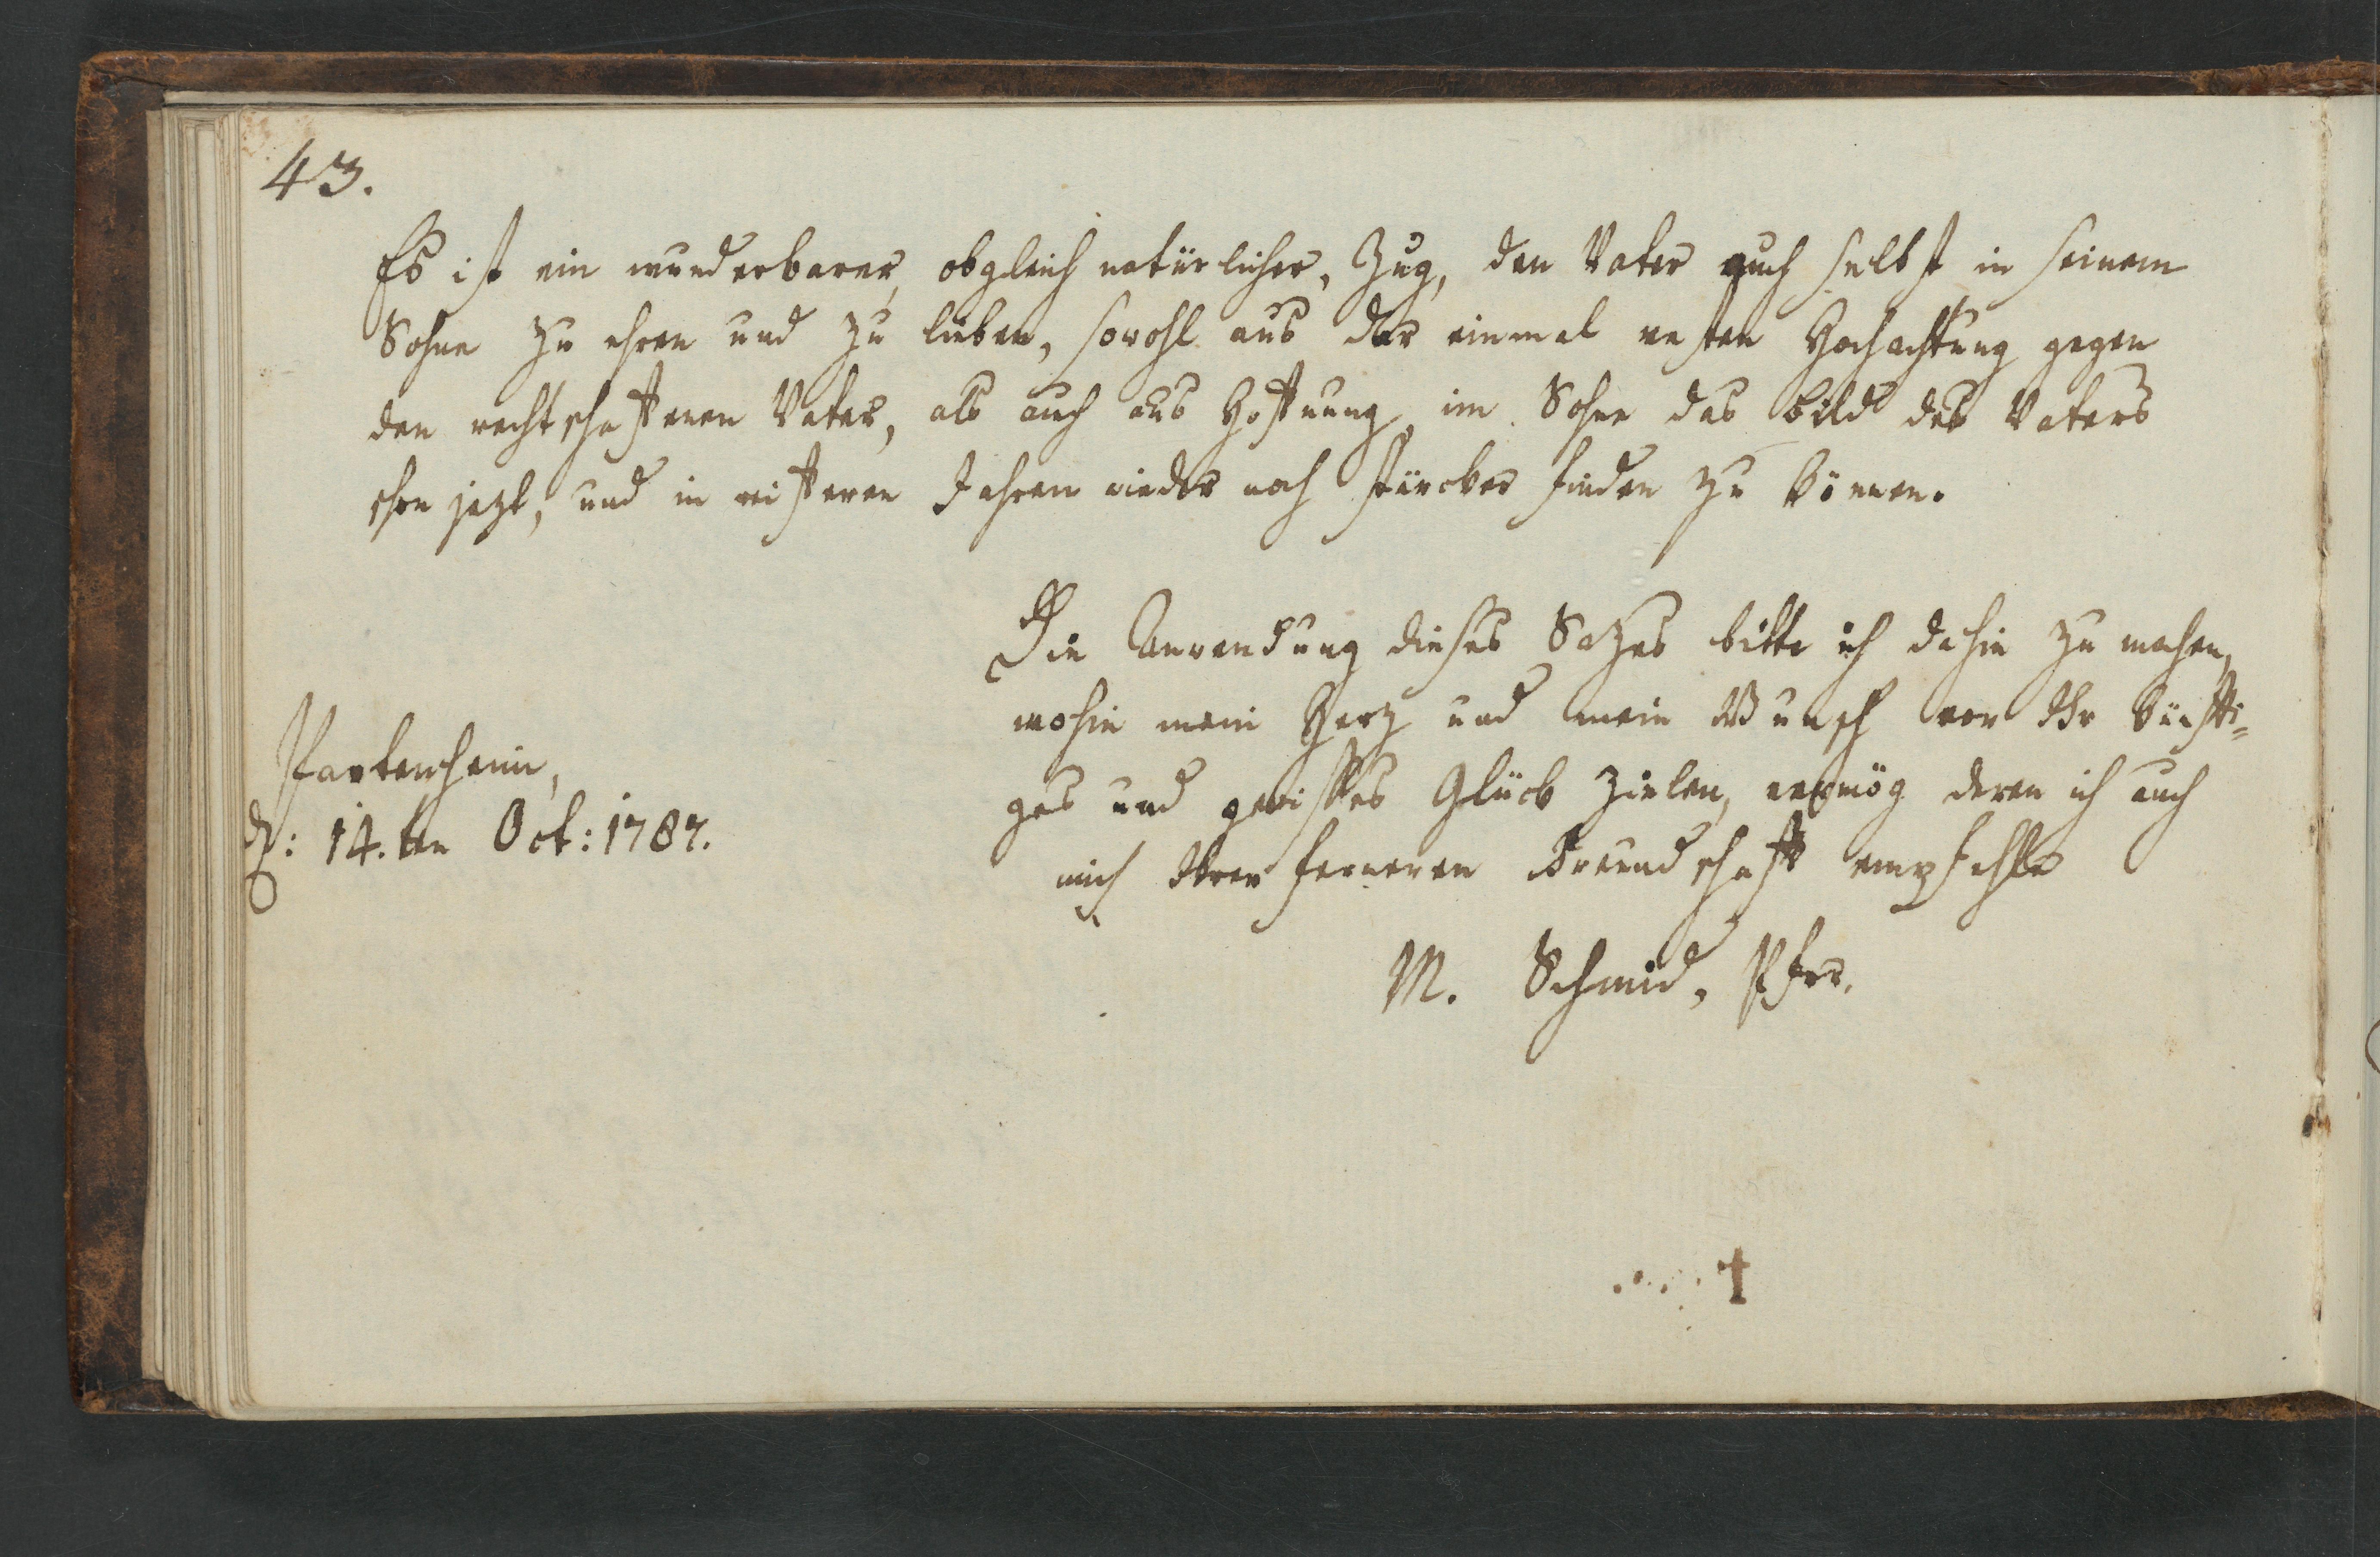 43.
Es ist ein wunderbarer, obgleich natürlicher, Zug, den Vater auch selbst in seinem
Sohne zu ehren und zu lieben, sowohl aus der einmal vesten Hochachtung gegen
den rechtschaffenen Vater, als auch aus Hoffnung, im Sohne das Bild des Vaters
schon jezt, und in reifferen Jahren wieder noch stärcker finden zu können.
Die Anwendung dieses Sazes bitte ich dahin zu machen,
wohin mein Herz und mein Wunsch vor Ihr künffti=
ges und gewisses Glück zielen, vermög deren ich auch
mich Ihrer ferneren Freundschafft empfehle
M. Schmid, Pfrr.
Partenheim,
d: 14.ten Oct: 1787.